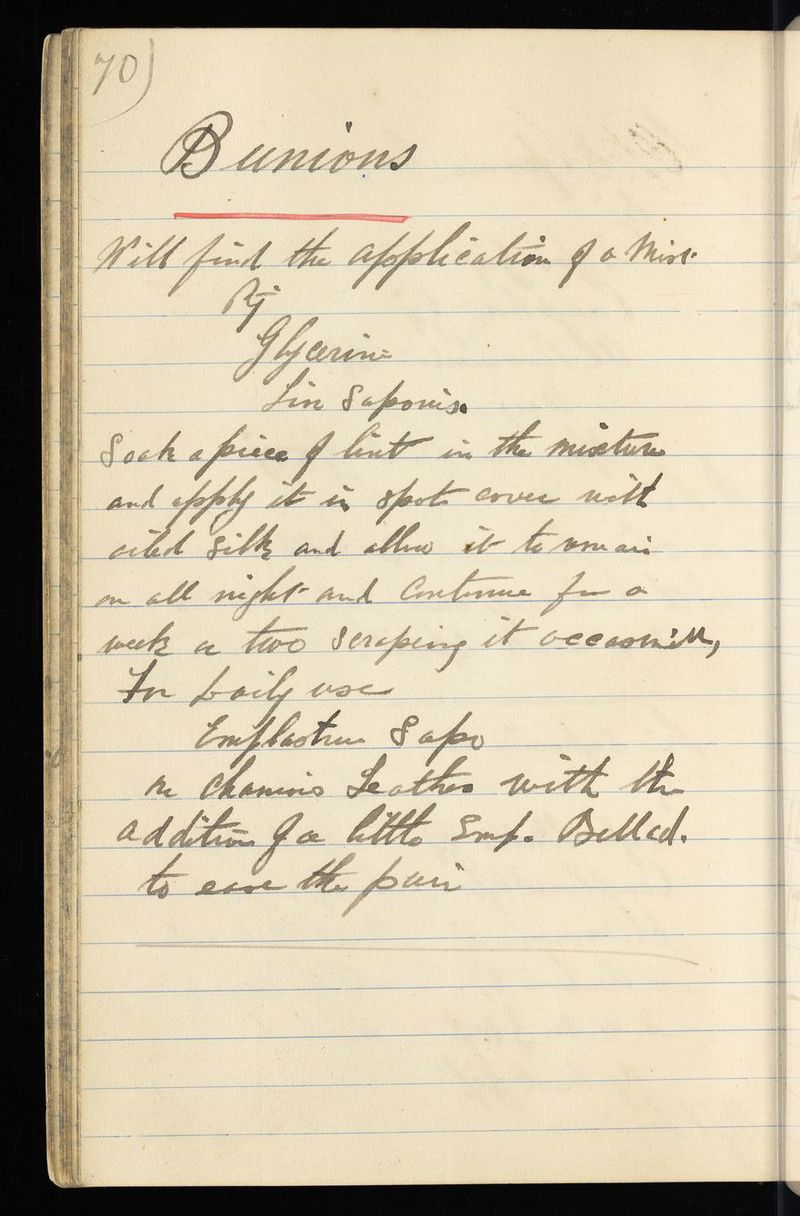 70)
Bunions
Will find the application of a Mixt.
Rj
Glycerine
Lin Saponis.
Soak a piece of lint in the mixture
and apply it in spot cover with
oiled silk and allow it to remain
on all night and Continue for a
week or two Scraping it occasionally
For Daily use
Emplastrum Sapo
on Chamois Leather with the
addition of a little Emp. Bellad.
to ease the pain